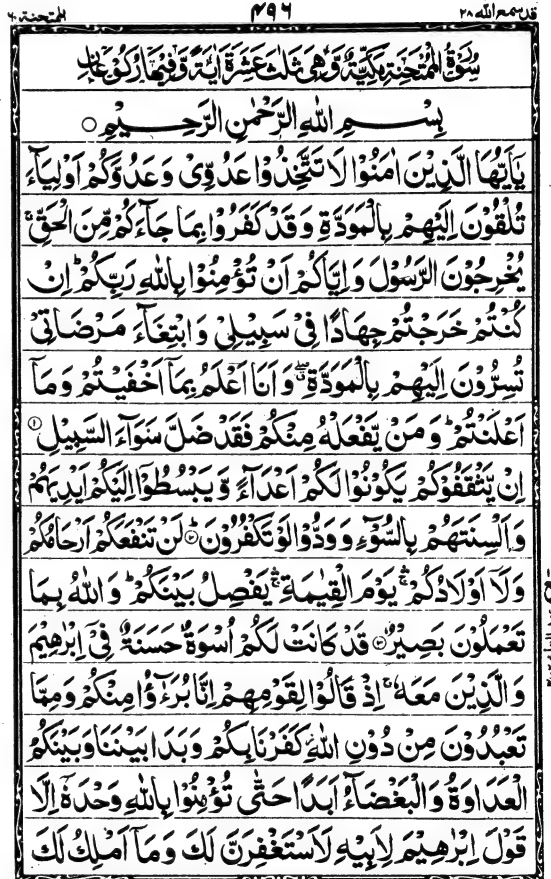 قد سمع الله ٢٨ ۴۹۶ الممتحنة ٦٠
سُوْرَةُ الْمُمْتَحِنَةِ مَكِّيَّةٌ وَّهِيَ ثَلٰثَ عَشْرَةَ اٰيَةً وَّفِيْهَا رُكُوْعَانِ
بِسْمِ اللهِ الرَّحْمٰنِ الرَّحِيْمِ ○
يٰۤاَيُّهَا الَّذِيْنَ اٰمَنُوْا لَا تَتَّخِذُوْا عَدُوِّيْ وَعَدُوَّكُمْ اَوْلِيَآءَ
تُلْقُوْنَ اِلَيْهِمْ بِالْمَوَدَّةِ وَقَدْ كَفَرُوْا بِمَا جَآءَكُمْ مِّنَ الْحَقِّ ۚ
يُخْرِجُوْنَ الرَّسُوْلَ وَاِيَّاكُمْ اَنْ تُؤْمِنُوْا بِاللهِ رَبِّكُمْ ؕ اِنْ
كُنْتُمْ خَرَجْتُمْ جِهَادًا فِيْ سَبِيْلِيْ وَابْتِغَآءَ مَرْضَاتِيْ
تُسِرُّوْنَ اِلَيْهِمْ بِالْمَوَدَّةِ ۖ وَاَنَا اَعْلَمُ بِمَاۤ اَخْفَيْتُمْ وَمَاۤ
اَعْلَنْتُمْ ؕ وَمَنْ يَّفْعَلْهُ مِنْكُمْ فَقَدْ ضَلَّ سَوَآءَ السَّبِيْلِ ۝١
اِنْ يَّثْقَفُوْكُمْ يَكُوْنُوْا لَكُمْ اَعْدَآءً وَّيَبْسُطُوْۤا اِلَيْكُمْ اَيْدِيَهُمْ
وَاَلْسِنَتَهُمْ بِالسُّوْٓءِ وَوَدُّوْا لَوْ تَكْفُرُوْنَ ؕ۝٢ لَنْ تَنْفَعَكُمْ اَرْحَامُكُمْ
وَلَاۤ اَوْلَادُكُمْ ۛ يَوْمَ الْقِيٰمَةِ ۛ يَفْصِلُ بَيْنَكُمْ ؕ وَاللهُ بِمَا
تَعْمَلُوْنَ بَصِيْرٌ ۝٣ قَدْ كَانَتْ لَكُمْ اُسْوَةٌ حَسَنَةٌ فِيْۤ اِبْرٰهِيْمَ
وَالَّذِيْنَ مَعَهٗ ۚ اِذْ قَالُوْا لِقَوْمِهِمْ اِنَّا بُرَءٰٓؤُا مِنْكُمْ وَمِمَّا
تَعْبُدُوْنَ مِنْ دُوْنِ اللهِ ؗ كَفَرْنَا بِكُمْ وَبَدَا بَيْنَنَا وَبَيْنَكُمُ
الْعَدَاوَةُ وَالْبَغْضَآءُ اَبَدًا حَتّٰى تُؤْمِنُوْا بِاللهِ وَحْدَهٗۤ اِلَّا
قَوْلَ اِبْرٰهِيْمَ لِاَبِيْهِ لَاَسْتَغْفِرَنَّ لَكَ وَمَاۤ اَمْلِكُ لَكَ